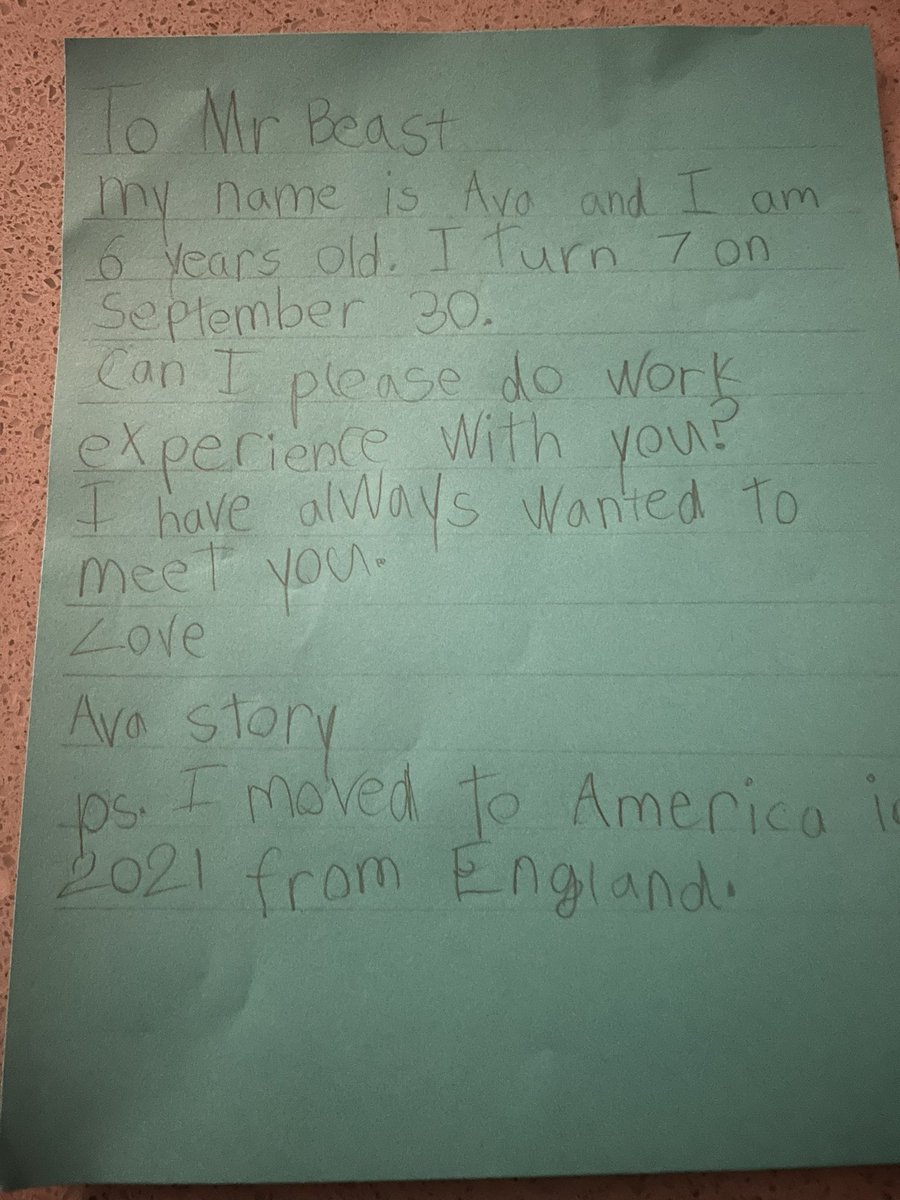 To Mr Beast
my name is Ava and I am
6 years old. I turn 7 on
September 30.
Can I please do work
experience with you?
I have always wanted to
meet you.
Love
Ava story
ps. I moved to America
2021 from England.